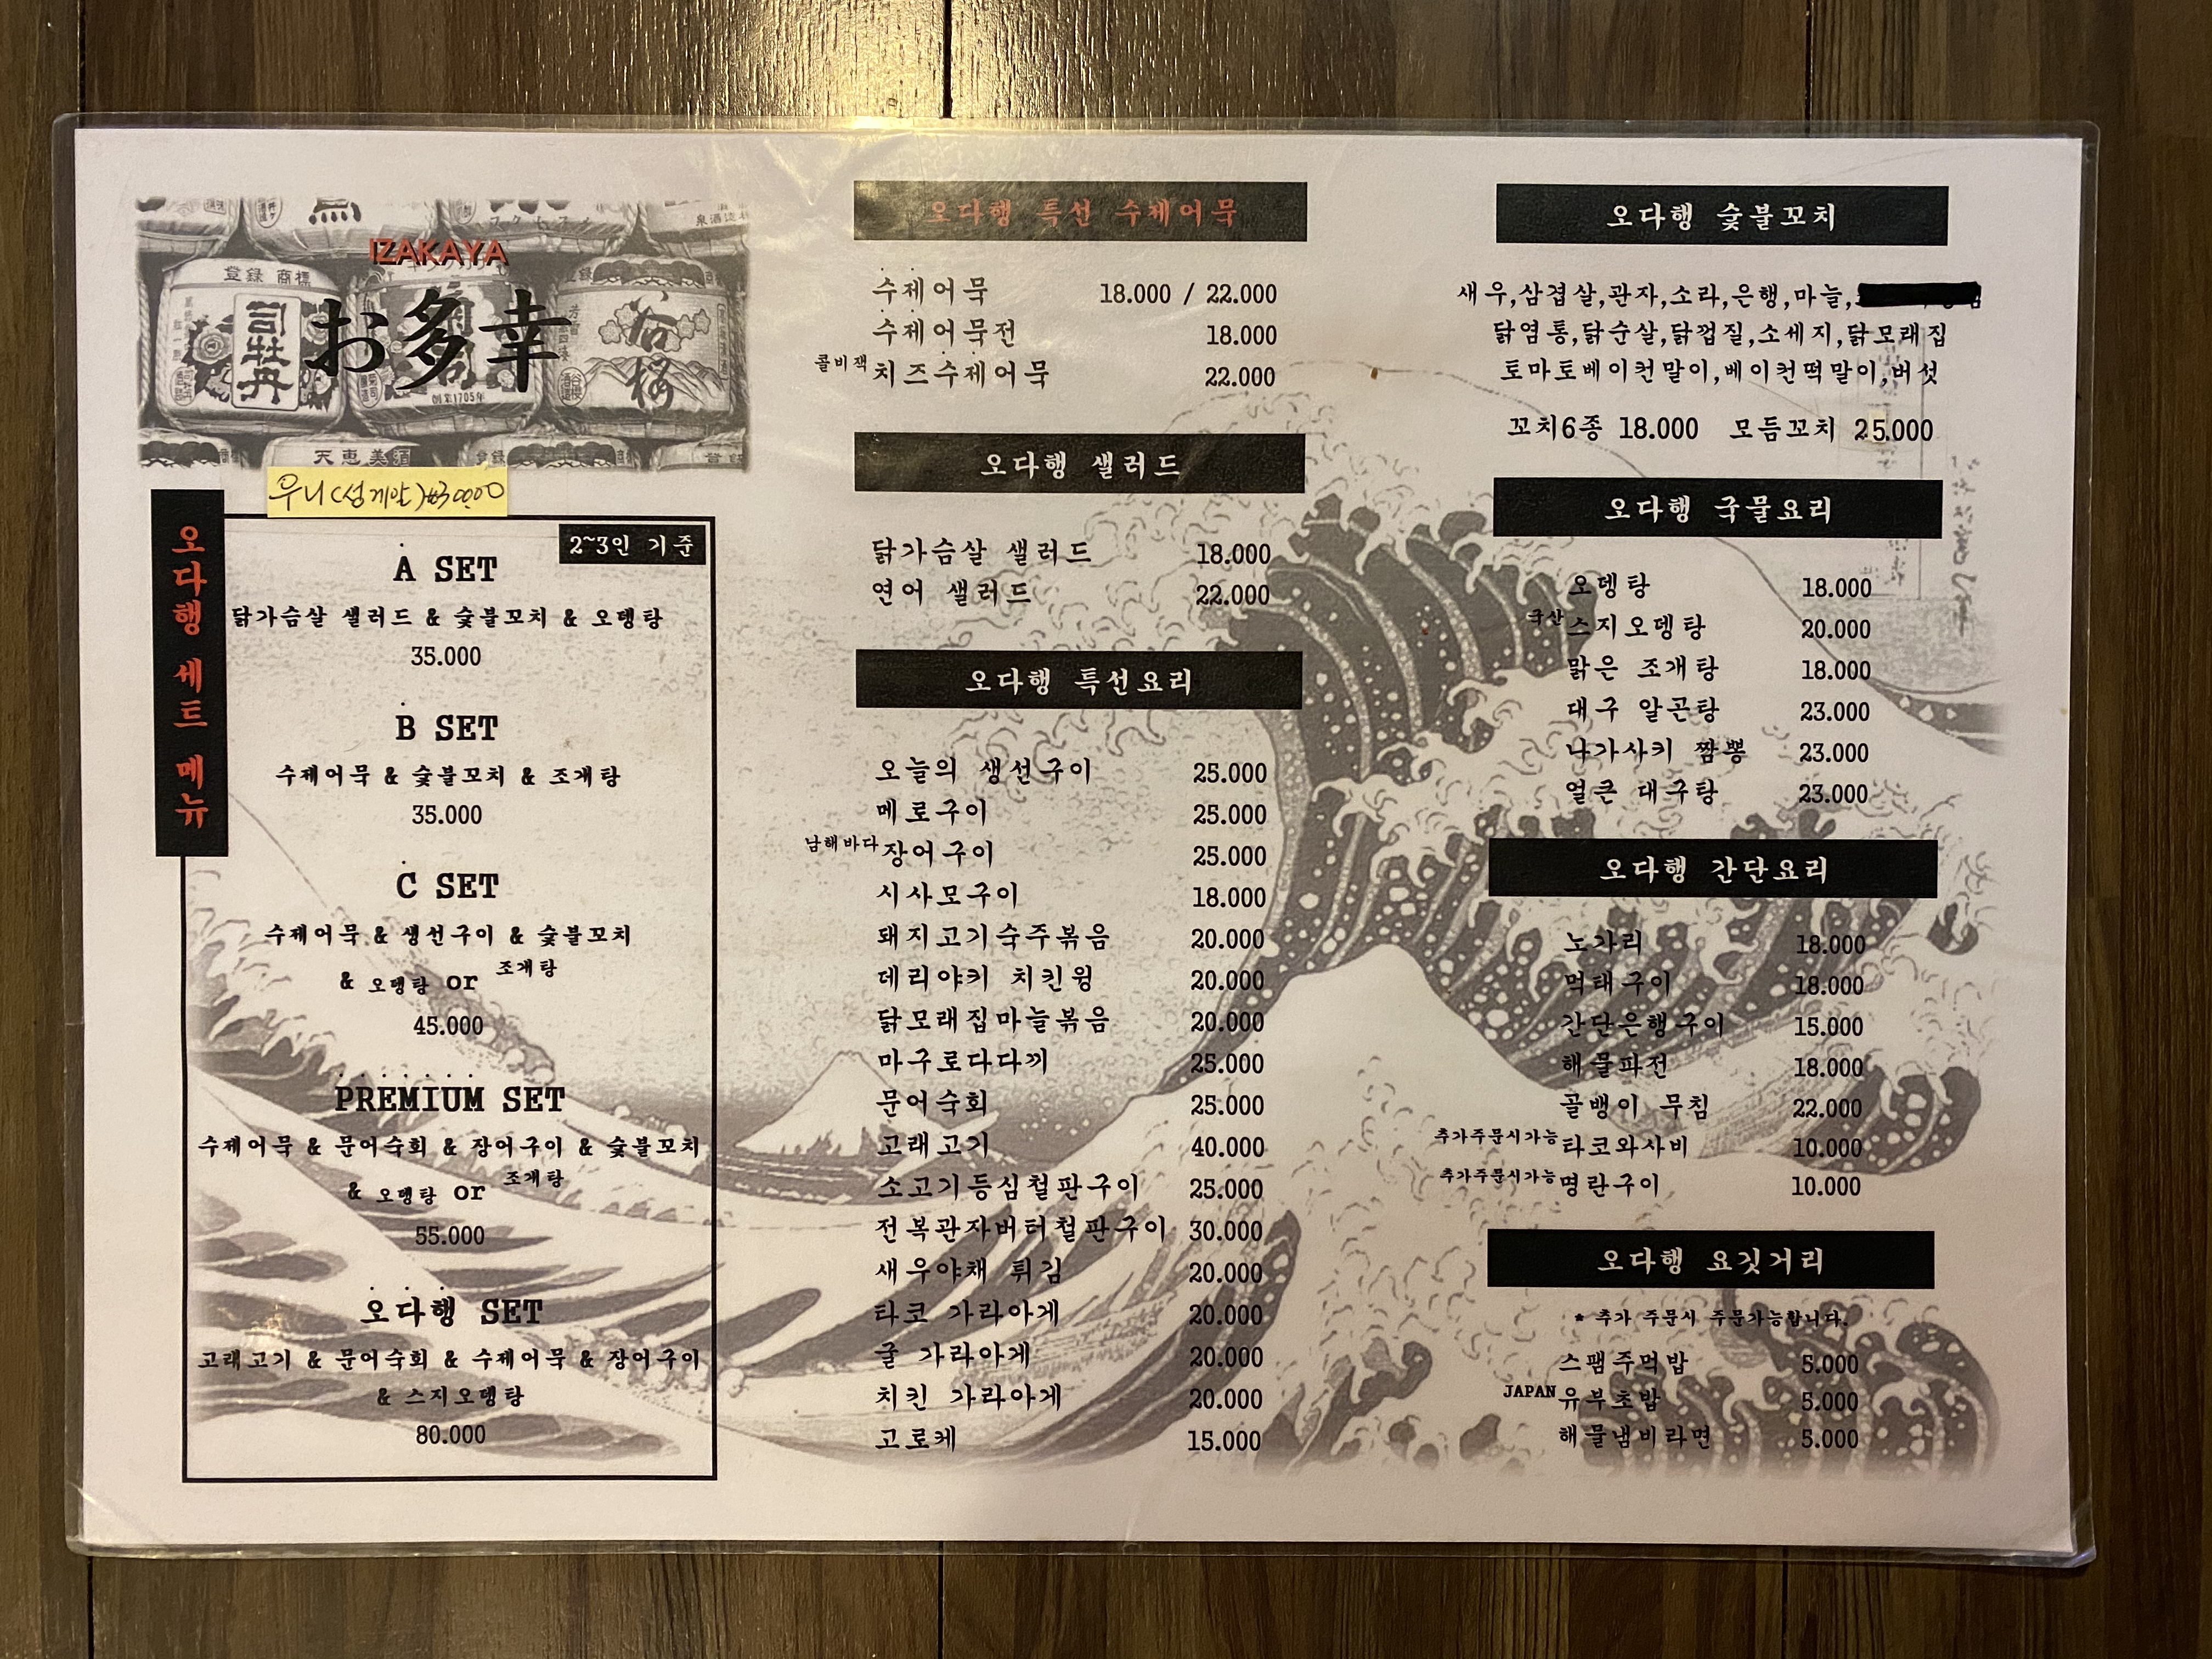 IZAKAYA
お多幸
登録 商標
司牡丹
創業1705年
天恵美酒
우니(성게알)₩30000
오다행 세트 메뉴
2~3인 기준
A SET
닭가슴살 샐러드 & 숯불꼬치 & 오뎅탕
35.000
B SET
수제어묵 & 숯불꼬치 & 조개탕
35.000
C SET
수제어묵 & 생선구이 & 숯불꼬치
& 오뎅탕 or 조개탕
45.000
PREMIUM SET
수제어묵 & 문어숙회 & 장어구이 & 숯불꼬치
& 오뎅탕 or 조개탕
55.000
오다행 SET
고래고기 & 문어숙회 & 수제어묵 & 장어구이
& 스지오뎅탕
80.000
오다행 특선 수제어묵
수제어묵 18.000 / 22.000
수제어묵전 18.000
콜비잭 치즈수제어묵 22.000
오다행 샐러드
닭가슴살 샐러드 18.000
연어 샐러드 22.000
오다행 특선요리
오늘의 생선구이 25.000
메로구이 25.000
남해바다 장어구이 25.000
시사모구이 18.000
돼지고기숙주볶음 20.000
데리야키 치킨윙 20.000
닭모래집마늘볶음 20.000
마구로다다끼 25.000
문어숙회 25.000
고래고기 40.000
소고기등심철판구이 25.000
전복관자버터철판구이 30.000
새우야채 튀김 20.000
타코 가라아게 20.000
굴 가라아게 20.000
치킨 가라아게 20.000
고로케 15.000
오다행 숯불꼬치
새우,삼겹살,관자,소라,은행,마늘,
닭염통,닭순살,닭껍질,소세지,닭모래집
토마토베이컨말이,베이컨떡말이,버섯
꼬치6종 18.000 모듬꼬치 25.000
오다행 국물요리
오뎅탕 18.000
국산 스지오뎅탕 20.000
맑은 조개탕 18.000
대구 알곤탕 23.000
나가사키 짬뽕 23.000
얼큰 대구탕 23.000
오다행 간단요리
노가리 18.000
먹태구이 18.000
간단은행구이 15.000
해물파전 18.000
골뱅이 무침 22.000
추가주문시가능 타코와사비 10.000
추가주문시가능 명란구이 10.000
오다행 요깃거리
* 추가 주문시 주문가능합니다.
스팸주먹밥 5.000
JAPAN 유부초밥 5.000
해물냄비라면 5.000